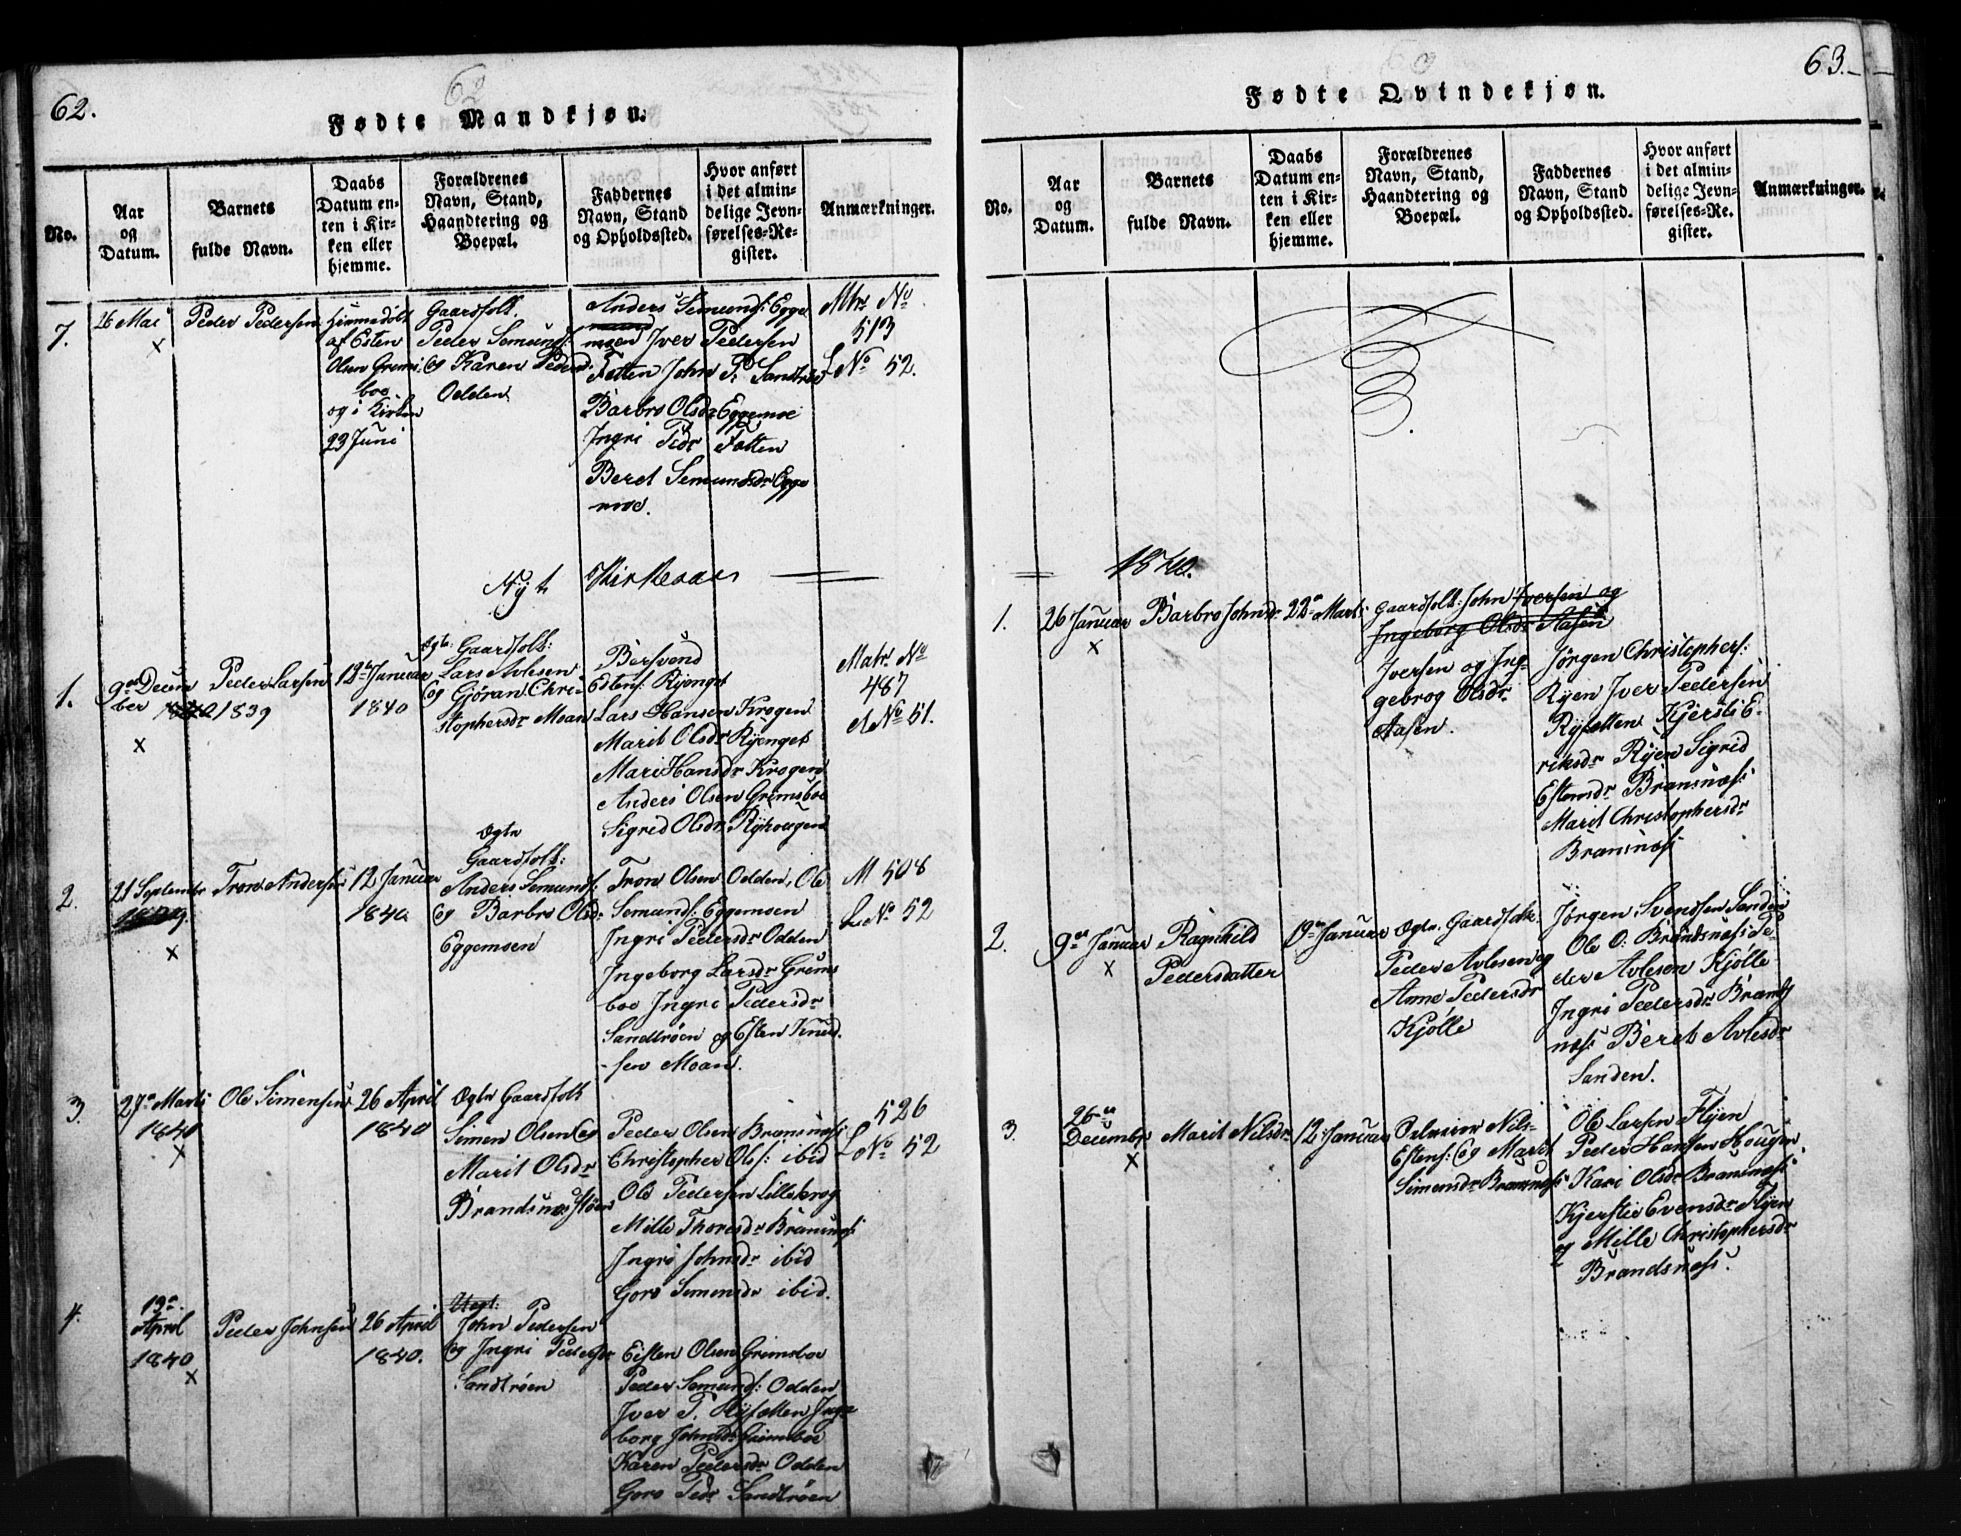 62.
Fødte Mandkjøn.
No.
Aar
og
Datum.
Barnets
fulde Navn.
Daabs
Datum en-
ten i Kir-
ken eller
hjemme.
Forældrenes
Navn, Stand,
Haandtering og
Boepæl.
Faddernes
Navn, Stand
og Opholdssted.
Hvor anført
i det almin-
delige Jevn-
førelses-Re-
gister.
Anmærkninger.
7.
26 Mai
x
Peder Pedersen
Hjemmedøbt
af Esten
Olsen Grims-
boe
og i Kirken
23 Juni
Gaardfolk.
Peder Semunds:
og Karen Peders:
Odden
Anders Semunds: Egge
moen Iver Pedersen
Fætten John P. Sandtrøe
Barbro Olsdr Eggemoe
Ingri Pedr Fætten
Beret Semundsdr Egge
moe.
Mtr. No
513
L No 52.
Nyt Kirkeaar
1.
9de Decem
ber 1839
x
Peder Larsen
12te Januar
1840
Ægte: Gaardfolk:
Lars Avlesen
og Gjöran Chri
stophersdr Moan
Bersvend
Estens: Ryenget
Lars Hansen Krogen
Marit Olsdr Ryenget
Mari Hansdr Krogen
Anders Olsen Grimsboe
Sigrid Olsdr Ryhougen
Matr. No
487
L No 51.
2.
21 Septembr
1839.
x
Tron Andersen
12 Januar
1840
Ægte
Gaardfolk:
Anders Semunds:
og Barbro Olsdr
Eggemoen
Tron Olsen Odden, Ole
Semunds: Eggemoen
Ingri Pedersdr Odden
Ingeborg Larsdr Grims
boe Ingri Pedersdr
Sandtrøen og Esten Knud
sen Moan.
M 508
L No 52
3.
27de Marti
1840
x
Ole Simensen
26 April
1840
Ægte Gaardfolk
Simen Olsen og
Marit Olsdr
Brandsnæs Støen
Peder Olsen Bransnæs
Christopher Ols: ibid
Ole Pedersen Lillekrog
Mille Thoresdr Bransnæs
Ingri Johnsdr ibid
Goro Simensdr ibid.
526
L No 52
4.
13de
April
1840
x
Peder Johnsen
26 April
1840.
Uegt:
John Pedersen
og Ingri Pedersdr
Sandtrøen
Eisten Olsen Grimsboe
Peder Semunds: Odden
Iver P. Ryfætten Inge
borg Johnsdr Grimsboe
Karen Pedersdr Odden
Goro Pedr Sandtrøen
63.
Fødte Qvindekjøn.
No.
Aar
og
Datum.
Barnets
fulde Navn.
Daabs
Datum en-
ten i Kir-
ken eller
hjemme.
Forældrenes
Navn, Stand,
Haandtering og
Boepæl.
Faddernes
Navn, Stand
og Opholdssted.
Hvor anført
i det almin-
delige Jevn-
førelses-Re-
gister.
Anmærkninger.
1840.
1.
26 Januar
x
Barbro Johnsdr
22de Marti
Gaardfolk: John Iversen og
Ingeborg Olsdr Aasen
Iversen og Ing-
gebrog Olsdr
Aasen.
Jørgen Christophers:
Ryen Iver Pedersen
Ryfætten Kjersti E-
riksdr Ryen Sigrid
Estensdr Bransnæs
Marit Christophersdr
Bransnæs
2.
9de Januar
x
Ragnhild
Pedersdatter
19de Januar
Ægte. Gaardfolk.
Peder Avlesen og
Anne Pedersdr
Kjølle
Jørgen Svendsen Sanden
Ole O: Brandsnæs Pe-
der Avlesen Kjølle
Ingri Pedersdr Brands
næs Beret Avlesdr
Sanden.
3.
26de
Decembr
x
Marit Nilsdr
12 Januar
Nils
Estens: og Marit
Simensdr Bransnæs
Ole Larsen Flyen
Peder Hansen Hougen
Kari Olsdr Bransnæs
Kjerstie Evensdr Flyen
og Mille Christophersdr
Brandsnæs.